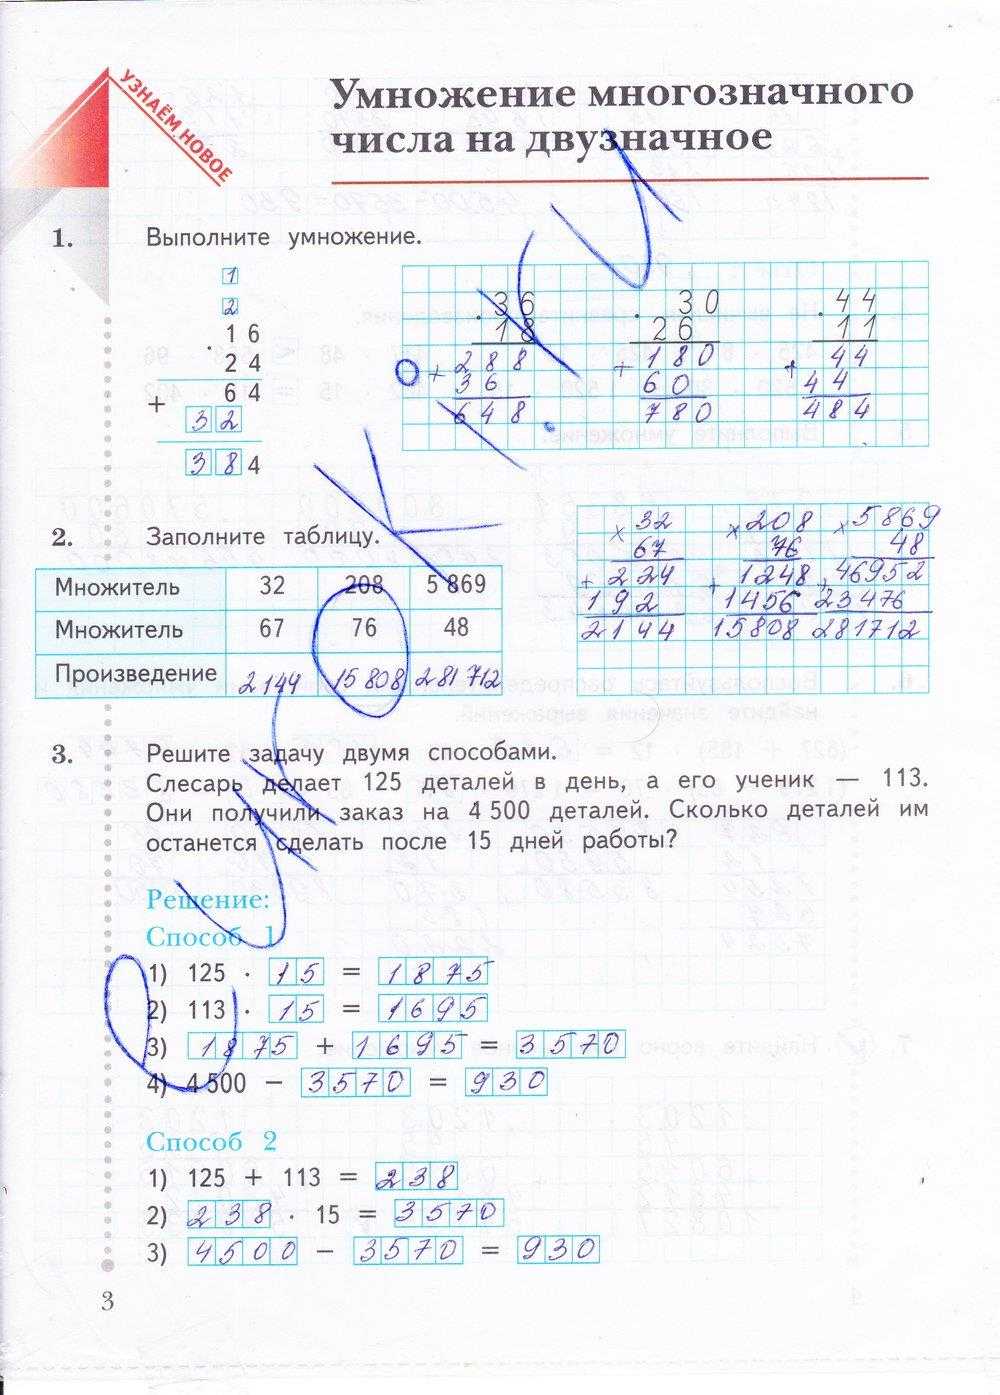 УЗНАЁМ НОВОЕ
Умножение многозначного
числа на двузначное
1. Выполните умножение.
1
2
· 16
24
64
+ 32
384
· 36
18
+ 288
36
648
· 30
26
+ 180
60
780
· 44
11
+ 44
44
484
2. Заполните таблицу.
Множитель 32 208 5 869
Множитель 67 76 48
Произведение 2144 15808 281712
× 32
67
+ 224
192
2144
× 208
76
+ 1248
1456
15808
× 5869
48
+ 46952
23476
281712
3. Решите задачу двумя способами.
Слесарь делает 125 деталей в день, а его ученик — 113.
Они получили заказ на 4 500 деталей. Сколько деталей им
останется сделать после 15 дней работы?
Решение:
Способ 1
1) 125 · 15 = 1875
2) 113 · 15 = 1695
3) 1875 + 1695 = 3570
4) 4 500 − 3570 = 930
Способ 2
1) 125 + 113 = 238
2) 238 · 15 = 3570
3) 4500 − 3570 = 930
3